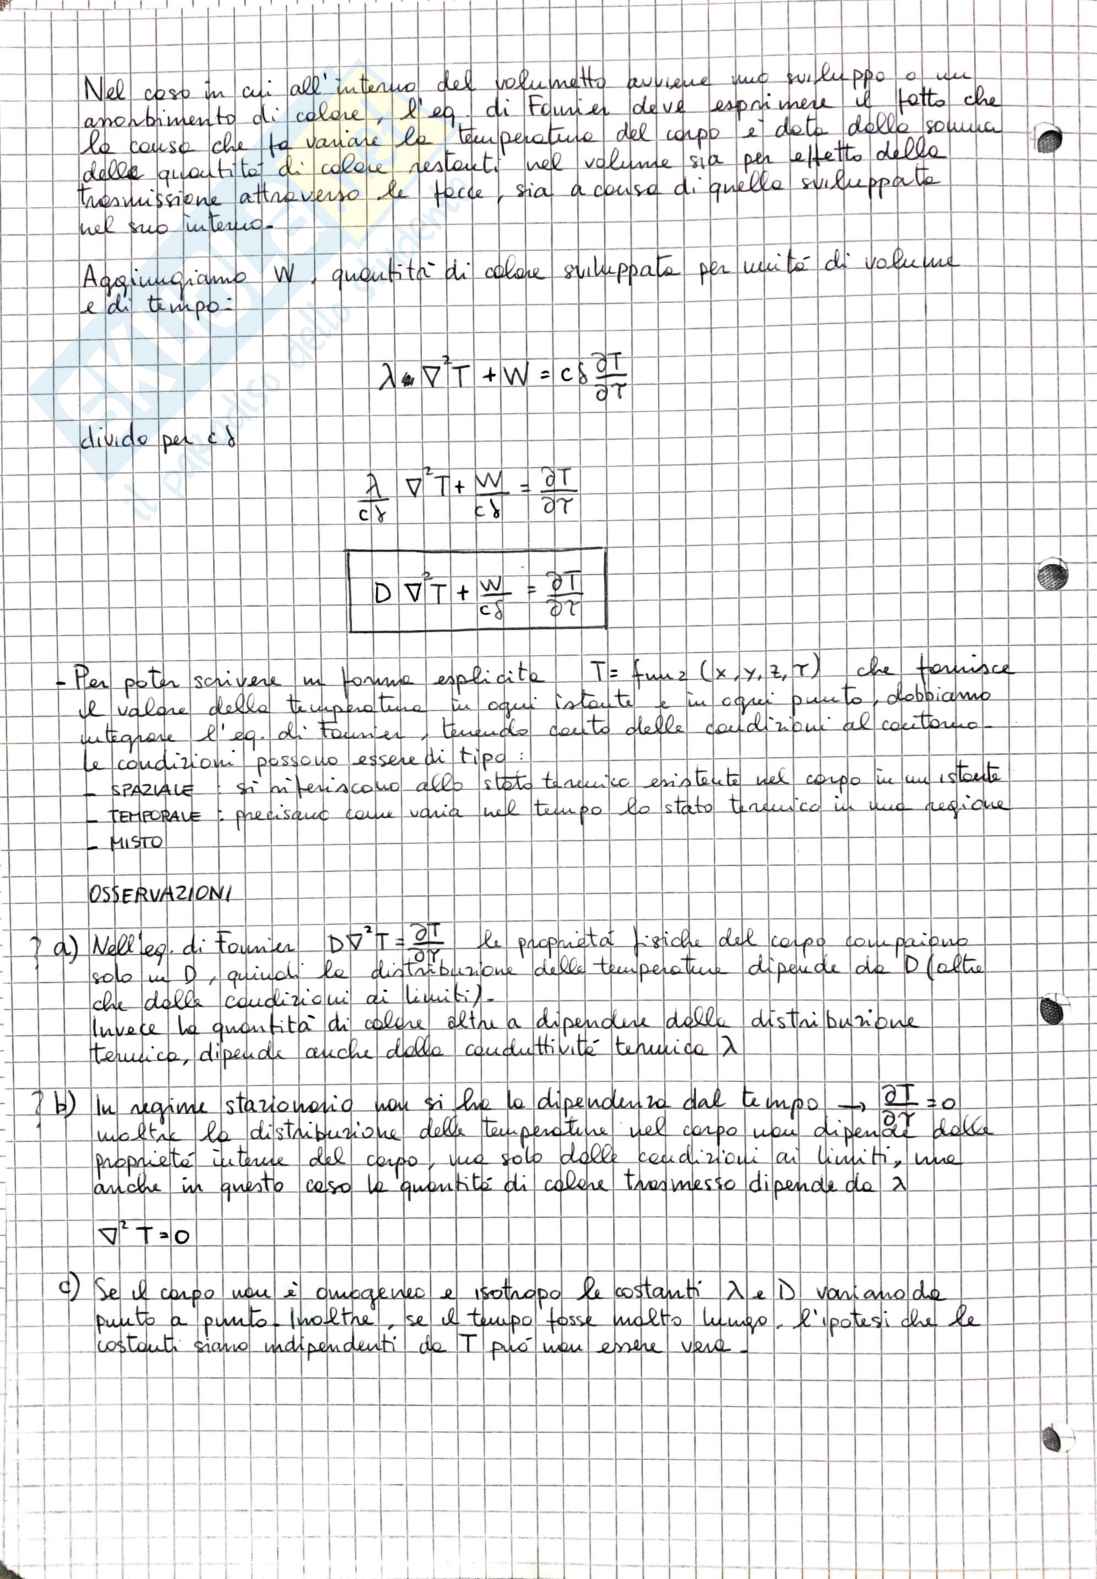 Nel caso in cui all'interno del volumetto avviene uno sviluppo o un
assorbimento di calore, l'eq. di Fourier deve esprimere il fatto che
la causa che fa variare la temperatura del corpo è data dalla somma
delle quantità di calore restanti nel volume sia per effetto della
trasmissione attraverso le facce, sia a causa di quella sviluppata
nel suo interno.
Aggiungiamo W, quantità di calore sviluppata per unità di volume
e di tempo:
λ ∇²T + W = cδ ∂T/∂τ
divido per cδ
λ/cδ ∇²T + W/cδ = ∂T/∂τ
D ∇²T + W/cδ = ∂T/∂τ
- Per poter scrivere in forma esplicita T = funz (x, y, z, τ) che fornisce
il valore della temperatura in ogni istante e in ogni punto, dobbiamo
integrare l'eq. di Fourier, tenendo conto delle condizioni al contorno.
Le condizioni possono essere di tipo:
- SPAZIALE : si riferiscono allo stato termico esistente nel corpo in un istante
- TEMPORALE : precisano come varia nel tempo lo stato termico in una regione
- MISTO
OSSERVAZIONI
? a) Nell'eq. di Fourier D∇²T = ∂T/∂τ le proprietà fisiche del corpo compaiono
solo in D, quindi la distribuzione delle temperature dipende da D (oltre
che dalle condizioni ai limiti).
Invece la quantità di calore oltre a dipendere dalla distribuzione
termica, dipende anche dalla conduttività termica λ
? b) In regime stazionario non si ha la dipendenza dal tempo → ∂T/∂τ = 0
inoltre la distribuzione delle temperature nel corpo non dipende dalle
proprietà interne del corpo, ma solo dalle condizioni ai limiti, ma
anche in questo caso la quantità di calore trasmesso dipende da λ
∇² T = 0
c) Se il corpo non è omogeneo e isotropo le costanti λ e D variano da
punto a punto. Inoltre, se il tempo fosse molto lungo, l'ipotesi che le
costanti siano indipendenti da T può non essere vera.
SKUOLA
il paradiso dello studente